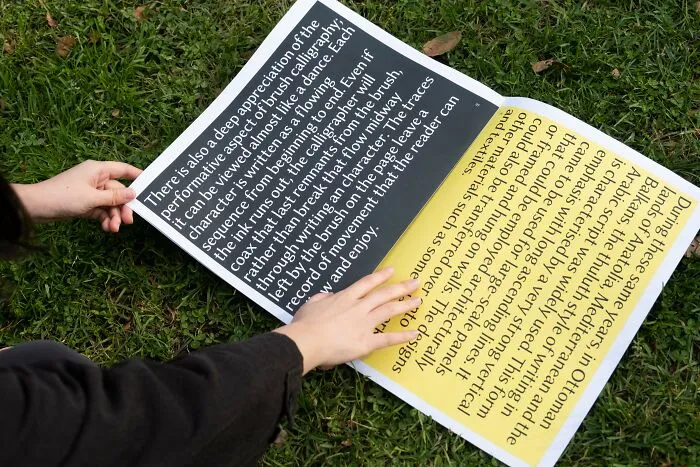 There is also a deep appreciation of the
performative aspect of brush calligraphy;
it can be viewed almost like a dance. Each
character is written as a flowing
sequence from beginning to end. Even if
the ink runs out, the calligrapher will
coax that last remnants from the brush,
rather than break that flow midway
through writing an character. The traces
left by the brush on the page leave a
record of movement that the reader can
and enjoy.
During these same years in Ottoman
lands of Anatolia, Mediterranean and the
Balkans, the thuluth style of writing in
Arabic script was widely used. This form
is characterised by a very strong vertical
emphasis with long ascending lines. It
came to be employed architecturally
that could be used for large-scale panels
or framed and hung on walls. The designs
could also be transferred over
other materials such as
and textiles.